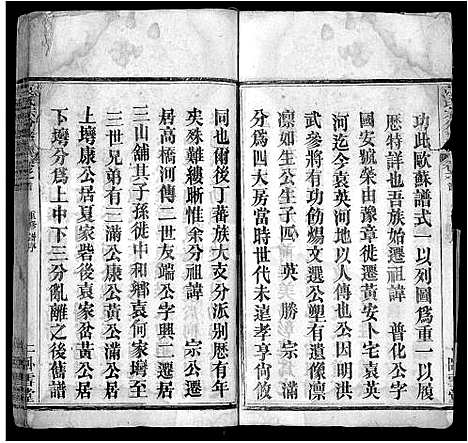 功此歐蘇譜式一以列圖爲重一以履
歷特詳也吾族始遷祖諱 普化公字
安國號榮由豫章徙遷黃安卜宅袁英
河迄今袁英河以人傳也公因明洪
武參將有功勅賜文選公萬有遺像凛
凛如生公生子四 英 勝 宗 滿
分爲四大房當時世代未遠孝享尚攸
同也爾後丁蕃族大支分派别歷有年
矣殊難縷晰惟余分祖諱 宗公遷
居高橋河傳二世友端公字興二遷
三山舖其子孫徙中和鄉袁何家塆至
三世兄弟有三滿公康公黃公滿公居
上塆康公居夏家砦後袁家畚黃公居
下塆分爲上中下三分亂離之後舊譜